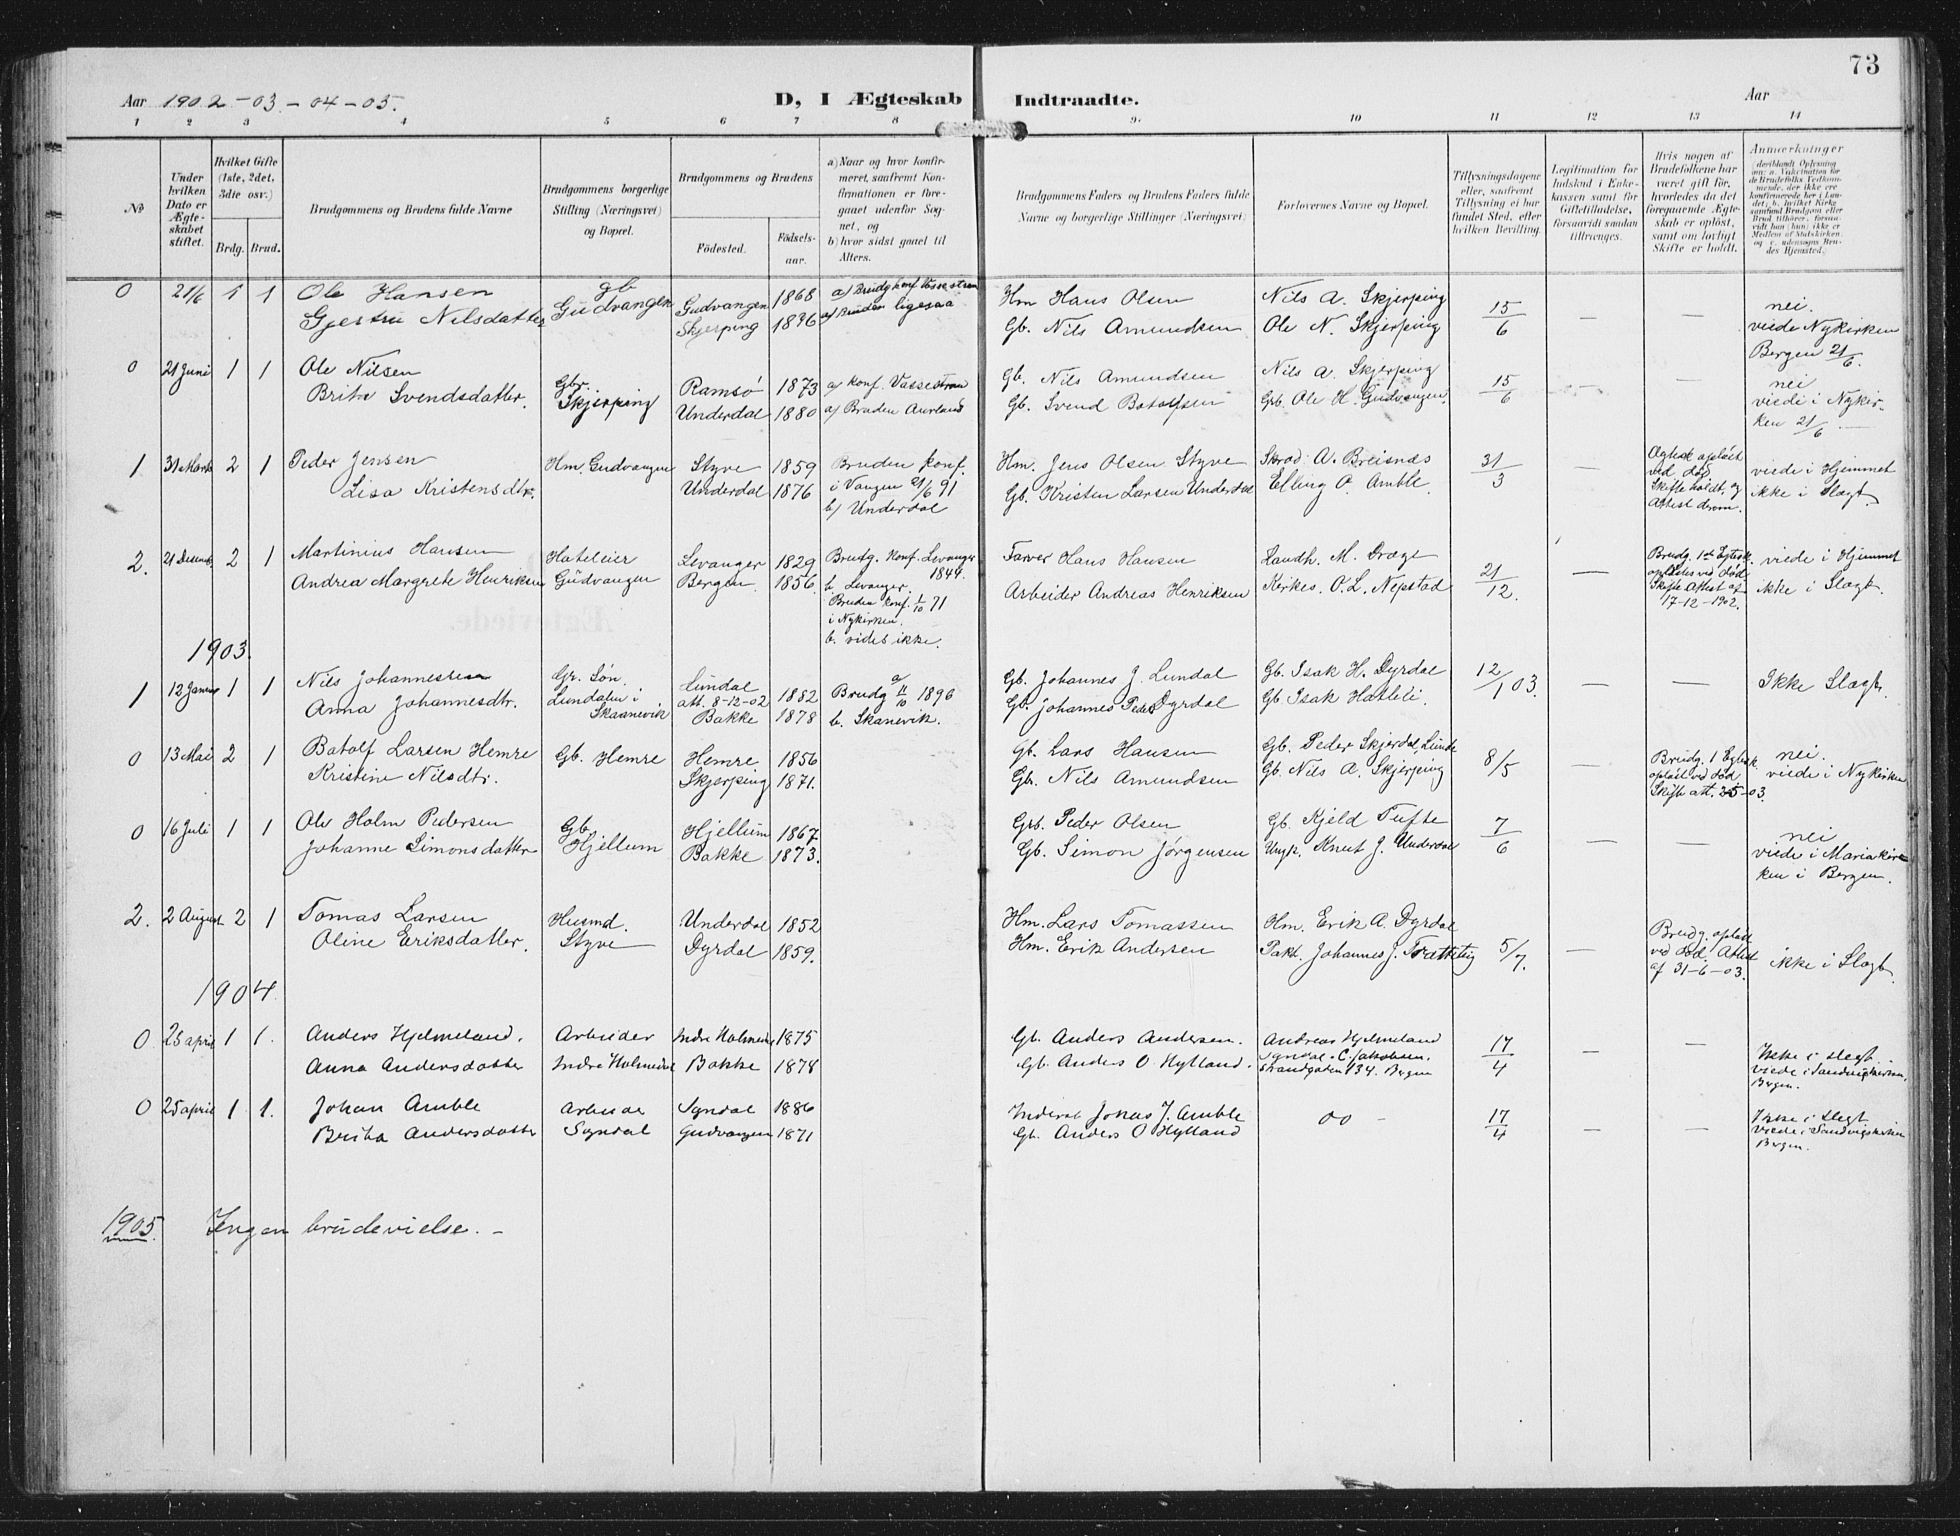 73
Aar 1902-03-04-05.
D, I Ægteskab Indtraadte.
Aar
1 2 3 4 5 6 7 8 9. 10 11 12 13 14
No
Under hvilken Dato er Ægteskabet stiftet.
Hvilket Gifte (1ste, 2det, 3die osv.)
Brdg. Brud.
Brudgommens og Brudens fulde Navne
Brudgommens borgerlige Stilling (Næringsvei) og Bopæl.
Brudgommens og Brudens
Födested.
Födselsaar.
a) Naar og hvor konfirmeret, saafremt Konfirmationen er foregaaet udenfor Sognet, og
b) hvor sidst gaaet til Alters.
Brudgommens Faders og Brudens Faders fulde Navne og borgerlige Stillinger (Næringsvei)
Forlovernes Navne og Bopæl.
Tillysningsdagene eller, saafremt Tillysning ei har fundet Sted, efter hvilken Bevilling.
Legitimation for Indskud i Enkekassen samt for Giftetilladelse, forsaavidt saadan tiltrænges.
Hvis nogen af Brudefolkene har været gift før, hvorledes da det foregaaende Ægteskab er oplöst, samt om lovligt Skifte er holdt.
Anmærkninger
0 21/6 1 1 Ole Hansen gb Gudvangen Gudvangen 1868 a) Brudg konf Vossestran Hm Hans Olsen Nils A. Skjerping 15/6 — — nei.
Gjertru Nilsdatter Skjerping 1876 a) Bruden ligesaa Gb. Nils Amundsen Ole N. Skjerping viede Nykirken
Bergen 21/6.
0 21 Juni 1 1 Ole Nilsen Gbr. Ramsø 1873 a) konf. Vossestran Gb. Nils Amundsen Nils A. Skjerping 15/6 — — nei
Brita Svendsdatter. Skjerping Underdal 1880 a) Bruden Aurland Gb. Svend Botolfsen Grb. Ole H. Gudvangen. viede i Nykir-
ken 21/6. —
1 31 Marts 2 1 Peder Jensen Hm. Gudvangen Styve 1859 Bruden konf. Hm. Jens Olsen Styve Skræd. A. Breisnæs 31/3 — Ægtesk opløst ved død viede i Hjemmet
Lisa Kristensdtr. Underdal 1876 i Vangen 21/6 91 Gb. Kristen Larsen Underdal Elling O. Amble. Skifte holdt, og ikke i Slægt.
b) Underdal Attest derom.
2. 21 Desemb 2 1 Martinius Hansen Hoteleier Levanger 1829 Brudg. konf. Levanger 1844. Farver Hans Hansen Landh. M. Drage 21/12. — Brudg. 1st Egtesk. viede i Hjemmet
Andrea Margrete Henriksen Gudvangen Bergen 1856. b. Levanger. Arbeider Andreas Henriksen Kirkes. O. L. Nepstad opløstes ved død. ikke i Slægt.
Bruden konf. 1/10 71 Skifte Attest af
i Nykirken. 17-12-1902.
b. vides ikke.
1903.
1 12 Januar 1 1 Nils Johannessen Gr. Søn. Lundal 1882 Brudg 4/10 1896 Gb. Johannes J. Lundal Gb. Isak H. Dyrdal 12/1 03. — — Ikke Slægt.
Anna Johannesdtr. Lundalen i Skaanevik att. 8-12-02 Bakke 1878 b. Skanevik. Gb. Johannes Peder Dyrdal Gb. Isak Hatleli.
0 13 Mai 2 1 Botolf Larsen Hemre Gb. Hemre Hemre 1856 Gb. Lars Hansen Gb. Peder Skjerdal, Lunde 8/5 — Brudg. 1 Egtesk. nei.
Kristine Nilsdtr. Skjerping 1871. Gb. Nils Amundsen Gb. Nils A. Skjerping opløst ved død. viede i Nykirken
Skifte att. 25-03.
0 16 Juli 1 1 Ole Holm Pedersen Gb. Hjellum Hjellum 1867. Grb. Peder Olsen Gb. Kjeld Tufte 7/6 — — nei
Johanne Simonsdatter Bakke 1873. Gb. Simon Jørgensen Ungk. Knut J. Underdal viede i Mariakir-
ken i Bergen.
2. 2 August 2 1 Tomas Larsen Husmd. Underdal 1852 Hm. Lars Tomassen Hm. Erik A. Dyrdal 5/7. — Brudg. opløst
Oline Eriksdatter. Styve Dyrdal 1859. Hm. Erik Andersen Pakt. Johannes J. Trætteteig ved død. Attest ikke i Slægt.
af 31-6-03.
1904
0 25 april 1 1. Anders Hjelmeland. Arbeider Indre Holmedal 1875 Gb. Anders Andersen. Andreas Hjelmeland 17/4 — — Ikke i slegt.
Anna Andersdatter Indre Holmedal Bakke 1878 Gb. Anders O Hylland. Syndal. C. Jakobsen. Strandgaden 134. Bergen viede i Sandvigskirken, Bergen.
0 25 april 1 1. Johan Amble Arbeide Syndal 1886 Inderst Jonas J. Amble oo - 17/4 — — Ikke i slegt
Brita Andersdatter Syndal Gudvangen 1871 Gb. Anders O Hylland viede i Sandvigskirken Bergen.
1905. Ingen brudevielse. -